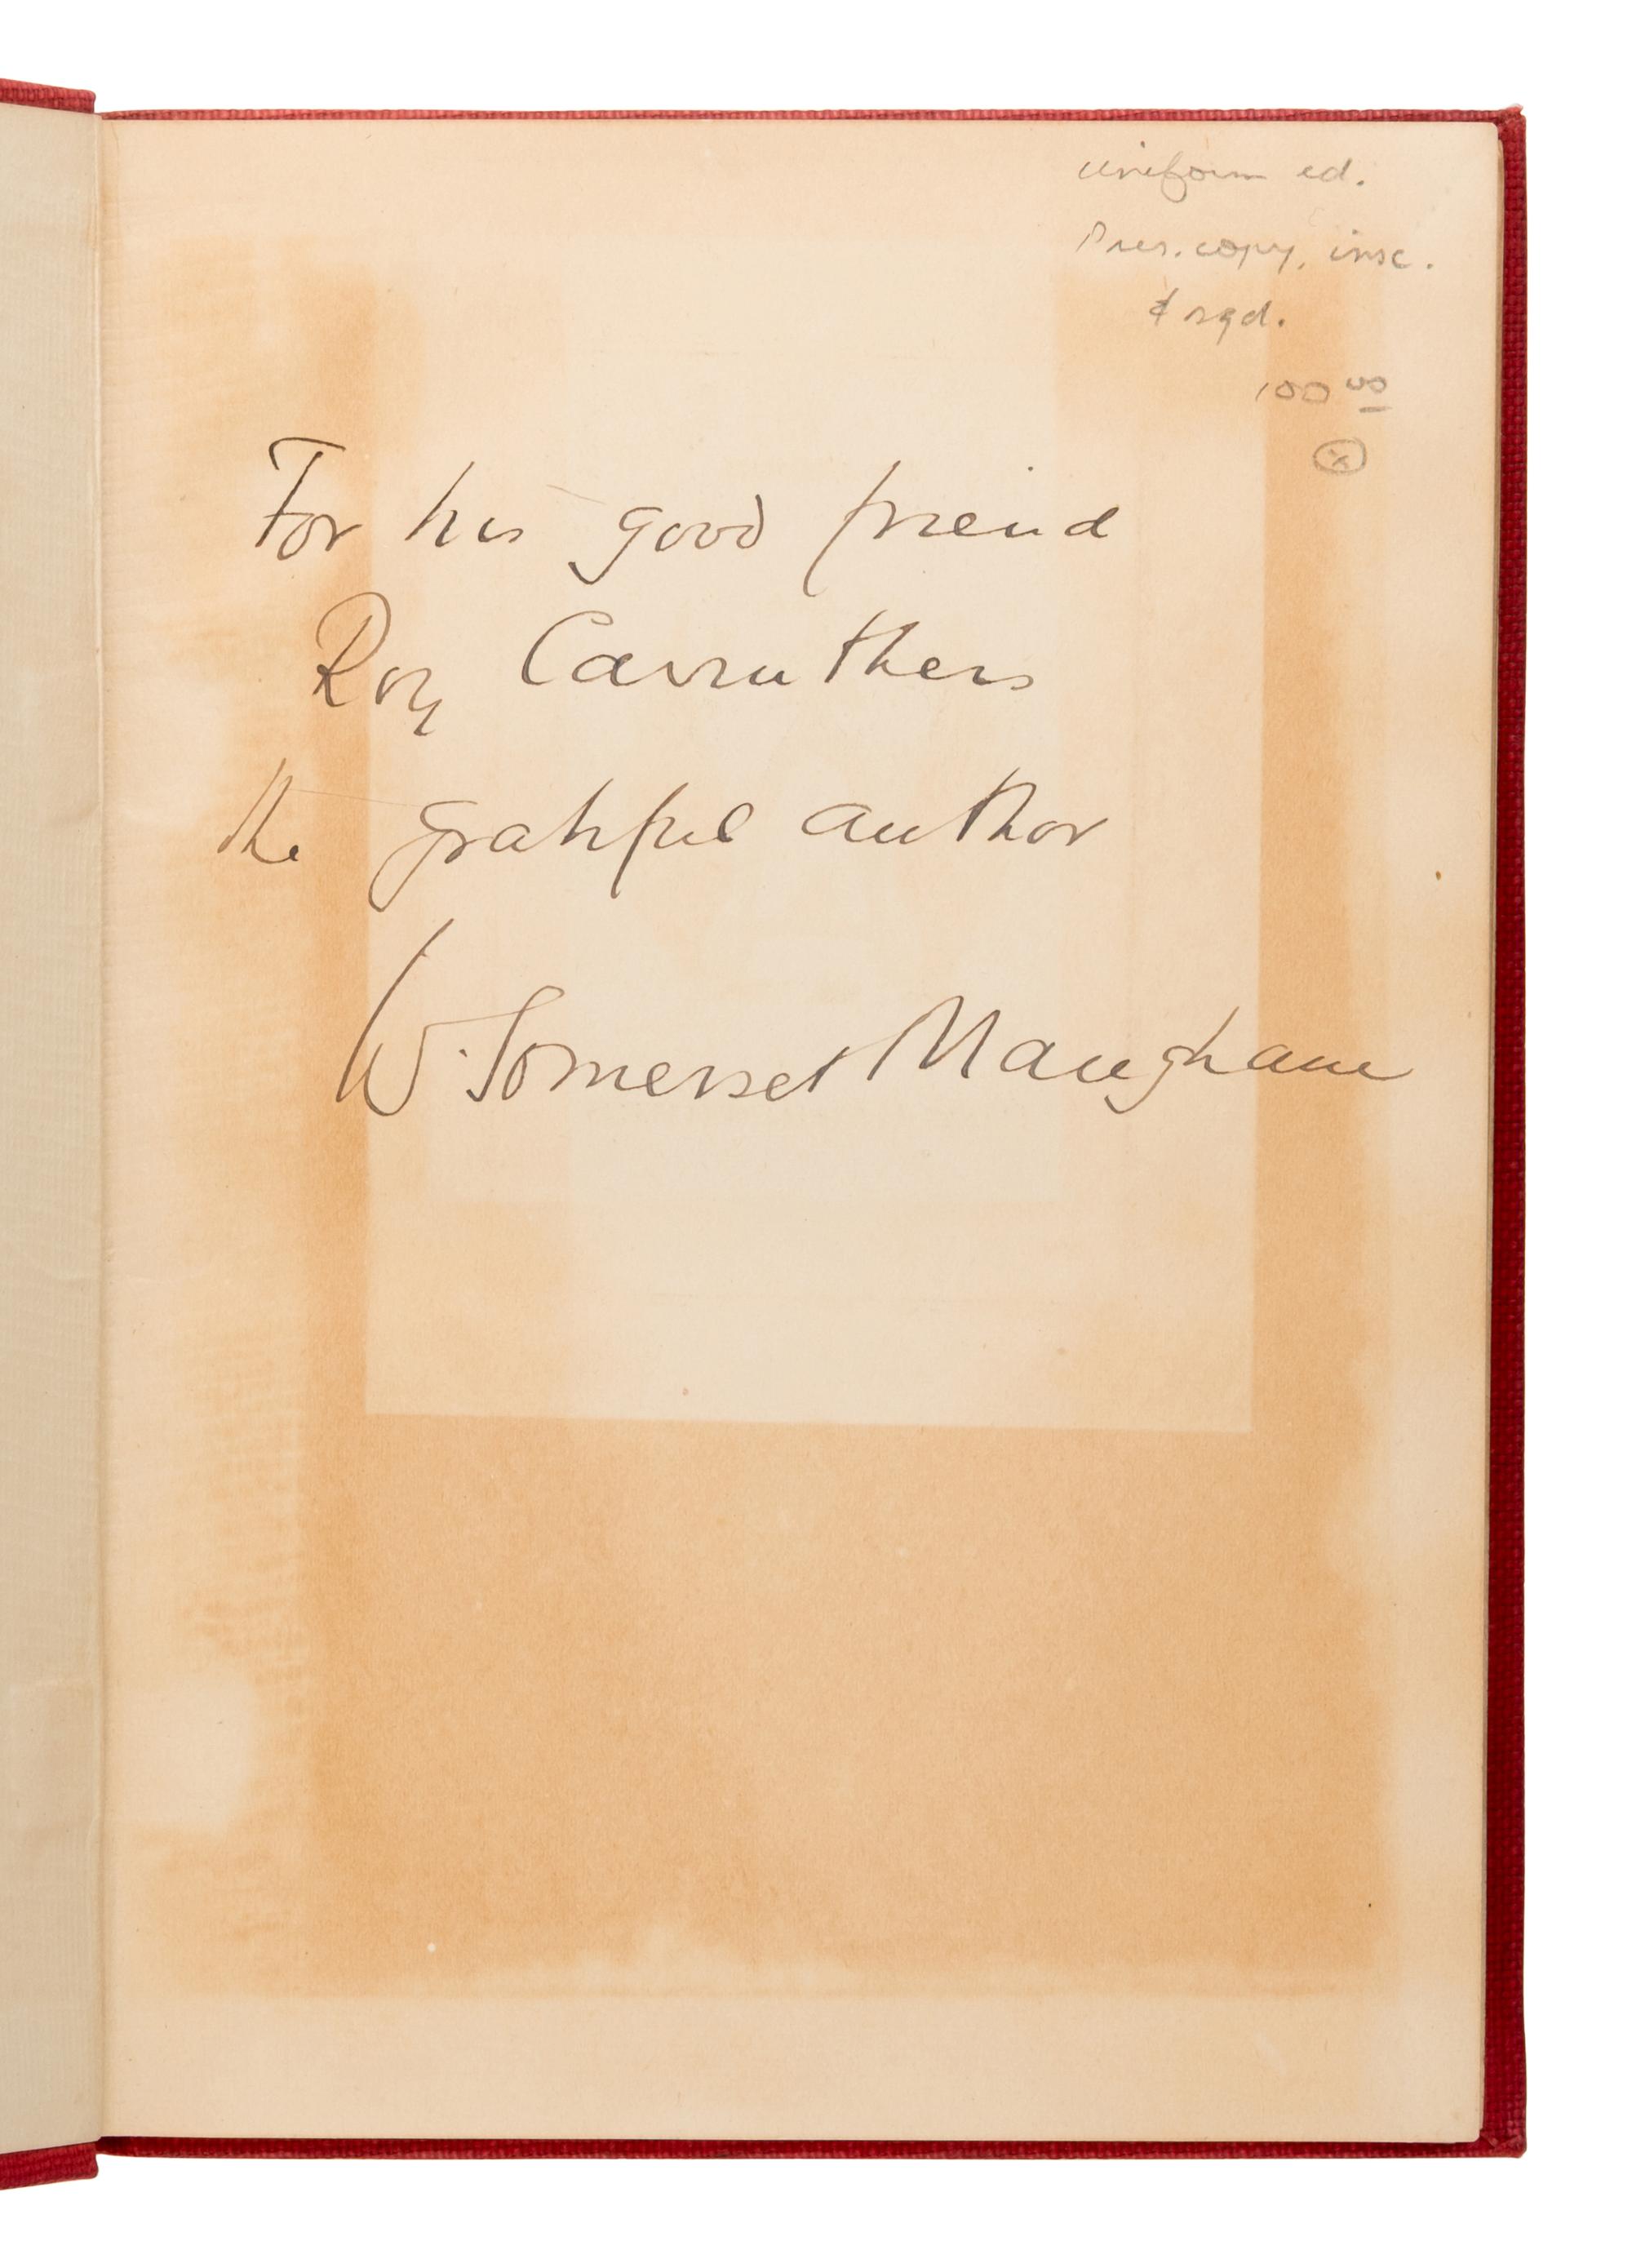 uniform ed.
Pres. copy, insc.
& sgd.
100 00
x
For his good friend
Roy Carruthers
the grateful author
W. Somerset Maugham